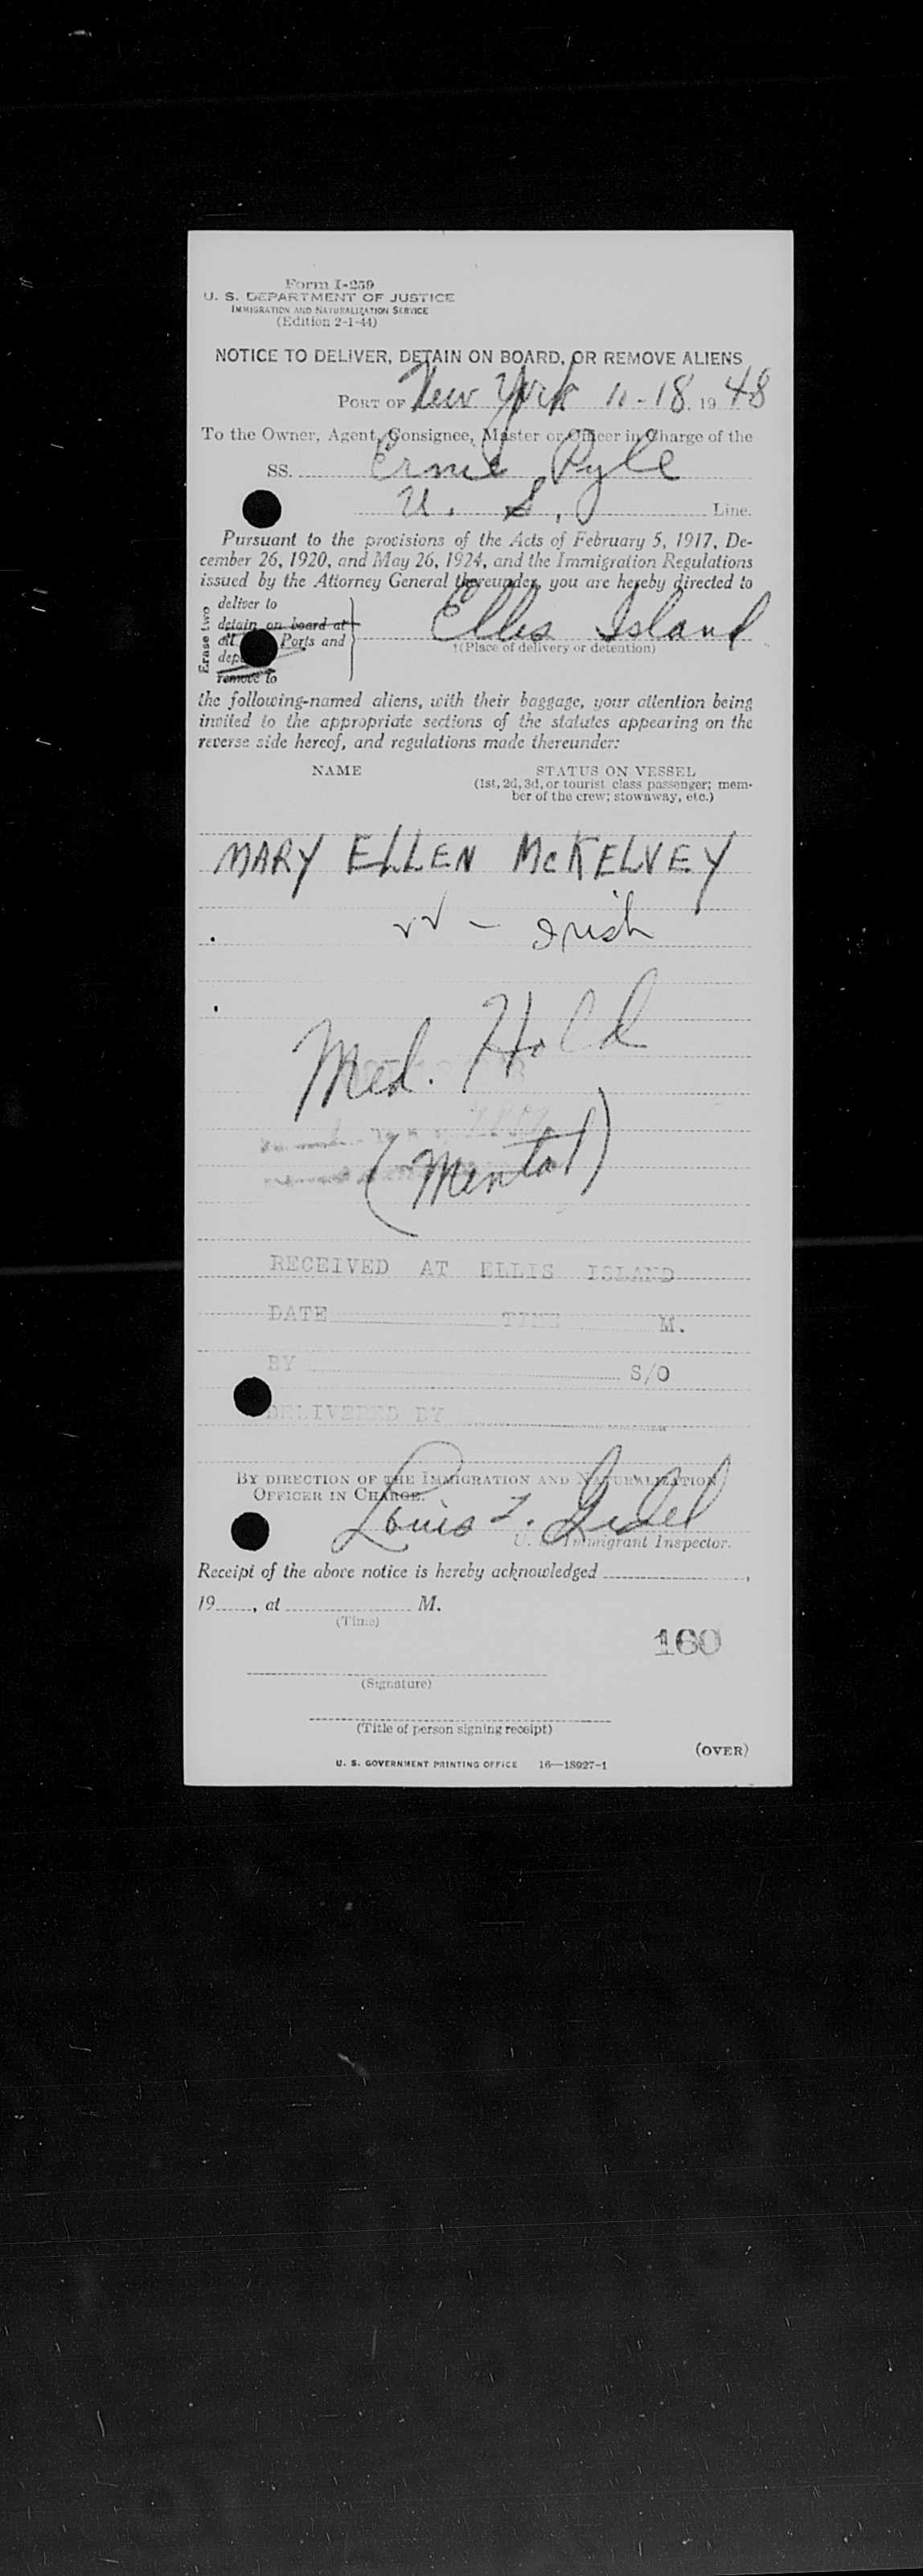 Form I-259
U. S. DEPARTMENT OF JUSTICE
IMMIGRATION AND NATURALIZATION SERVICE
(Edition 2-1-44)
NOTICE TO DELIVER, DETAIN ON BOARD, OR REMOVE ALIENS
PORT OF New York 11-18, 19 48
To the Owner, Agent, Consignee, Master or Officer in Charge of the
SS. Ernie Pyle
U. S. Line.
Pursuant to the provisions of the Acts of February 5, 1917, De-
cember 26, 1920, and May 26, 1924, and the Immigration Regulations
issued by the Attorney General thereunder, you are hereby directed to
Erase two
deliver to
detain on board at
all Ports and
remove to
Ellis Island
†(Place of delivery or detention)
the following-named aliens, with their baggage, your attention being
invited to the appropriate sections of the statutes appearing on the
reverse side hereof, and regulations made thereunder:
NAME STATUS ON VESSEL
(1st, 2d, 3d, or tourist class passenger; mem-
ber of the crew; stowaway, etc.)
MARY ELLEN McKELVEY
- Irish
Med. Hold
(Mental)
RECEIVED AT ELLIS ISLAND
DATE TIME M.
BY S/O
DELIVERED BY
BY DIRECTION OF THE IMMIGRATION AND NATURALIZATION
OFFICER IN CHARGE.
Louis
U. S. Immigrant Inspector.
Receipt of the above notice is hereby acknowledged ,
19 , at M.
(Time)
160
(Signature)
(Title of person signing receipt)
(OVER)
U. S. GOVERNMENT PRINTING OFFICE 16—18927-1